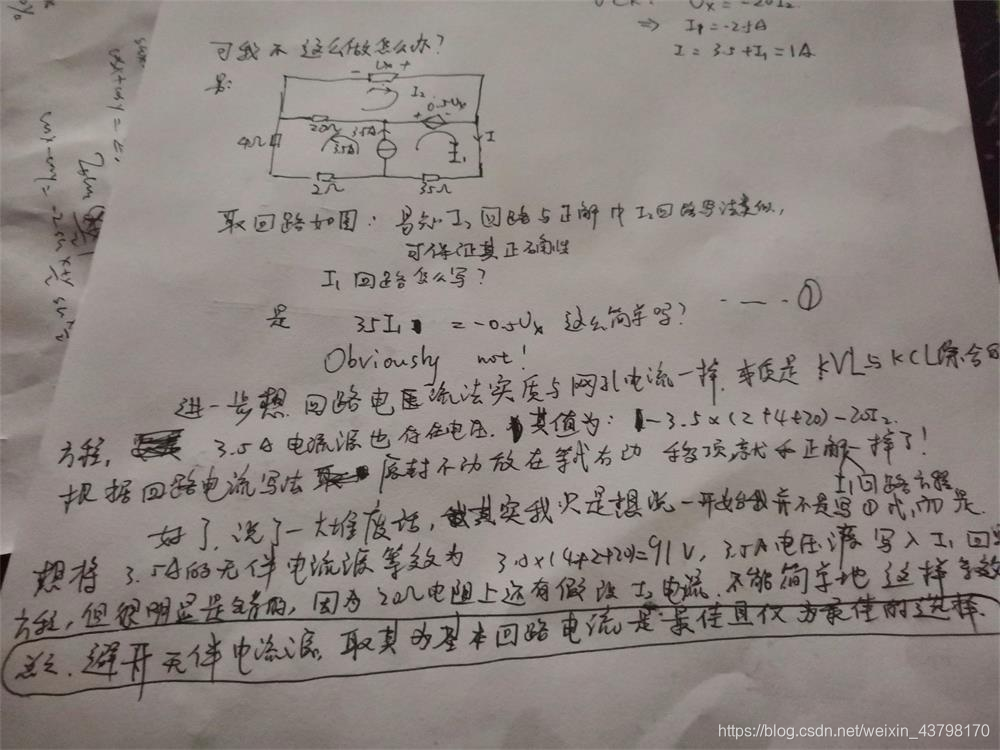 Ux = -20I2
⇒ I1 = -2.5A
I = 3.5+I1 = 1A
可我不这么做怎么办?
- Ux +
I2
0.5Ux
+ -
20Ω
3.5A
3.5A
I1
I
4Ω
2Ω
35Ω
取回路如图: 易知I2回路与正解中I2回路写法类似,
可保证其正确性
I1回路怎么写?
是 35I1 = -0.5Ux 这么简单吗? ①
Obviously not!
进一步想 回路电流法实质与网孔电流一样, 本质是KVL与KCL综合的
方程, 3.5A电流源也存在电压. 其值为: -3.5×(2+4+20)-20I2.
根据回路电流写法 原封不动放在等式右边 移项,就和正解一样了!
I1回路方程
好了,说了一大堆废话, 其实我只是想说一开始我并不是写①式,而是
想将3.5A的无伴电流源等效为 3.5×(4+2+20)=91V, 3.5A电压源写入I1回路
方程, 但很明显是错的, 因为20Ω电阻上还有假设I2电流. 不能简单地这样等效
总之. 避开无伴电流源. 取其为基本回路电流是最佳且仅为最佳的选择.
https://blog.csdn.net/weixin_43798170